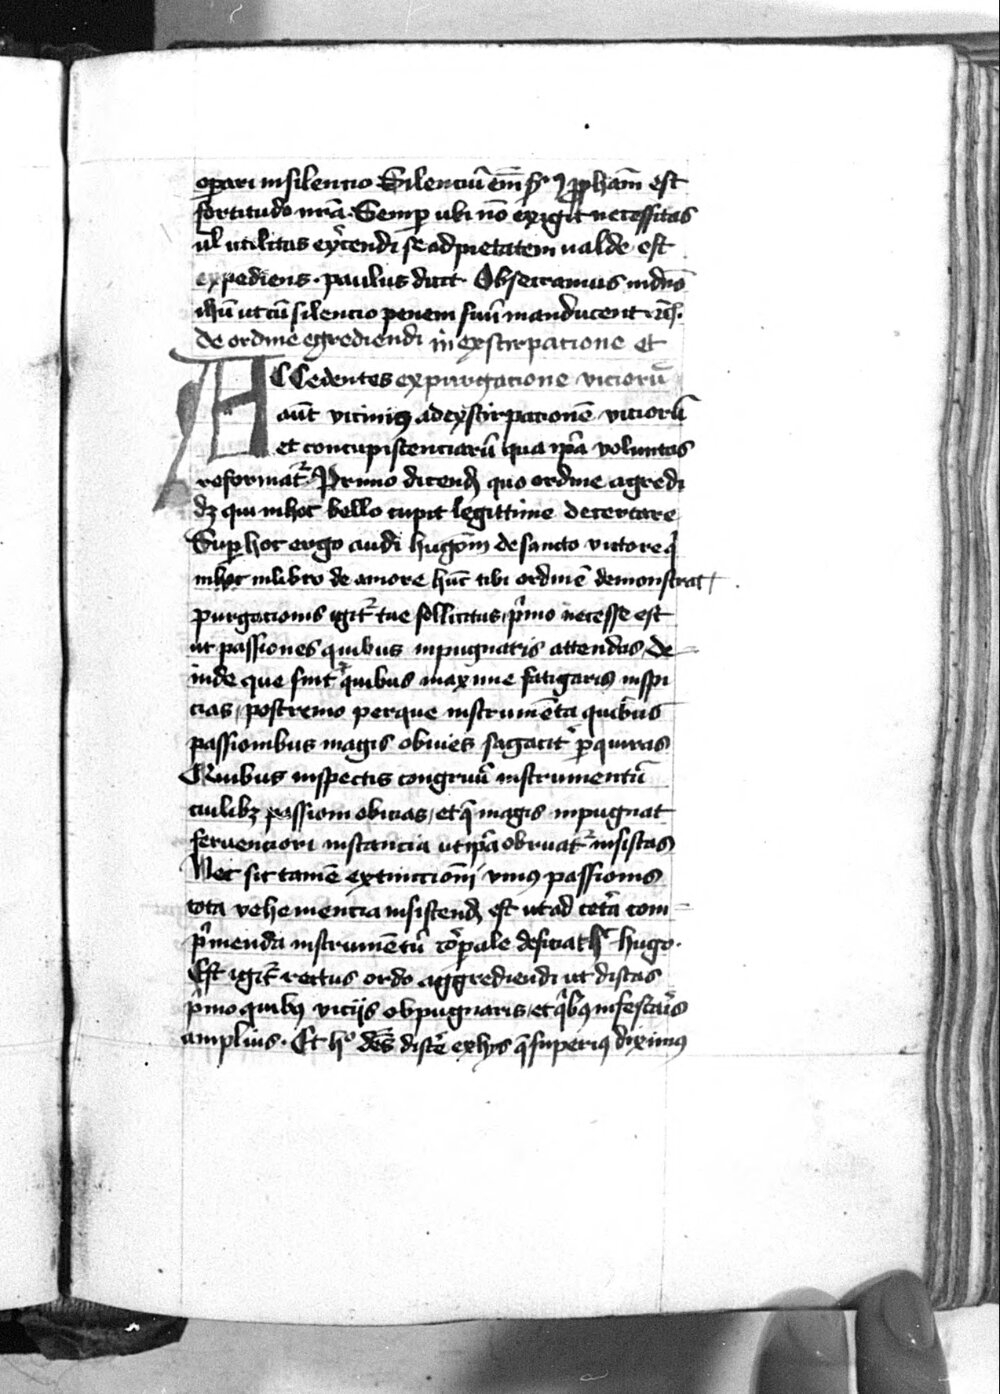 operari in silencio Silenciū em̄ scḋm ꝓpham̄ est
fortitudo nr̄a. Semꝑ ubi nō exigit necessitas
ul̄ utilitas exc̄endi se ad pietatem ualde est
expediens. paulus dicit Obsecramus in dn̄o
ihū ut cū silencio panem suū manducent
de ordine egrediendi in exstirpacione et
ACCedentes ex purgacione vicioru᷑
aūt vicinius ad exstirpacionē viciorū
et concupiscenciarū qua ip̄a voluntas
reformat᷑. Primo dicend̄ quo ordine agredi
dꝫ qui in hoc bello cupit legittime decertare
Suꝑ hoc ergo audi hugōm de sancto victore q̄
in hoc in libro de amore hūc tibi ordinē demonstrat
purgacionis igit᷑ tue sollicitus, p̄mo necesse est
ut passiones quibus inpugnaris attendas, de
inde que sint quibus maxime fatigaris inspi
cias, postremo perque instrumēta quibus
passionibus magis obuies sagacit᷑ ꝑquiras
Quibus inspectis congruū instrumentū
cuilibꝫ passioni obicias, et q̄ magis inpugnat
feruenciori instancia ut ip̄a obruat᷑ insistas
Nec sic tamē extinccioni vniꝰ passionis
tota vehemencia insistend̄ est ut ad cet̄a com
p̄menda instrumētū corꝑale deficiat h̄ hugo.
Est igit᷑ rectus ordo aggrediendi ut discas
p̄mo quibꝰ viciis obpugnaris, et q̄bꝰ infestar̄s
amplius. Et hͦ des̄ discē ex hys q̄ superiꝰ diximꝰ